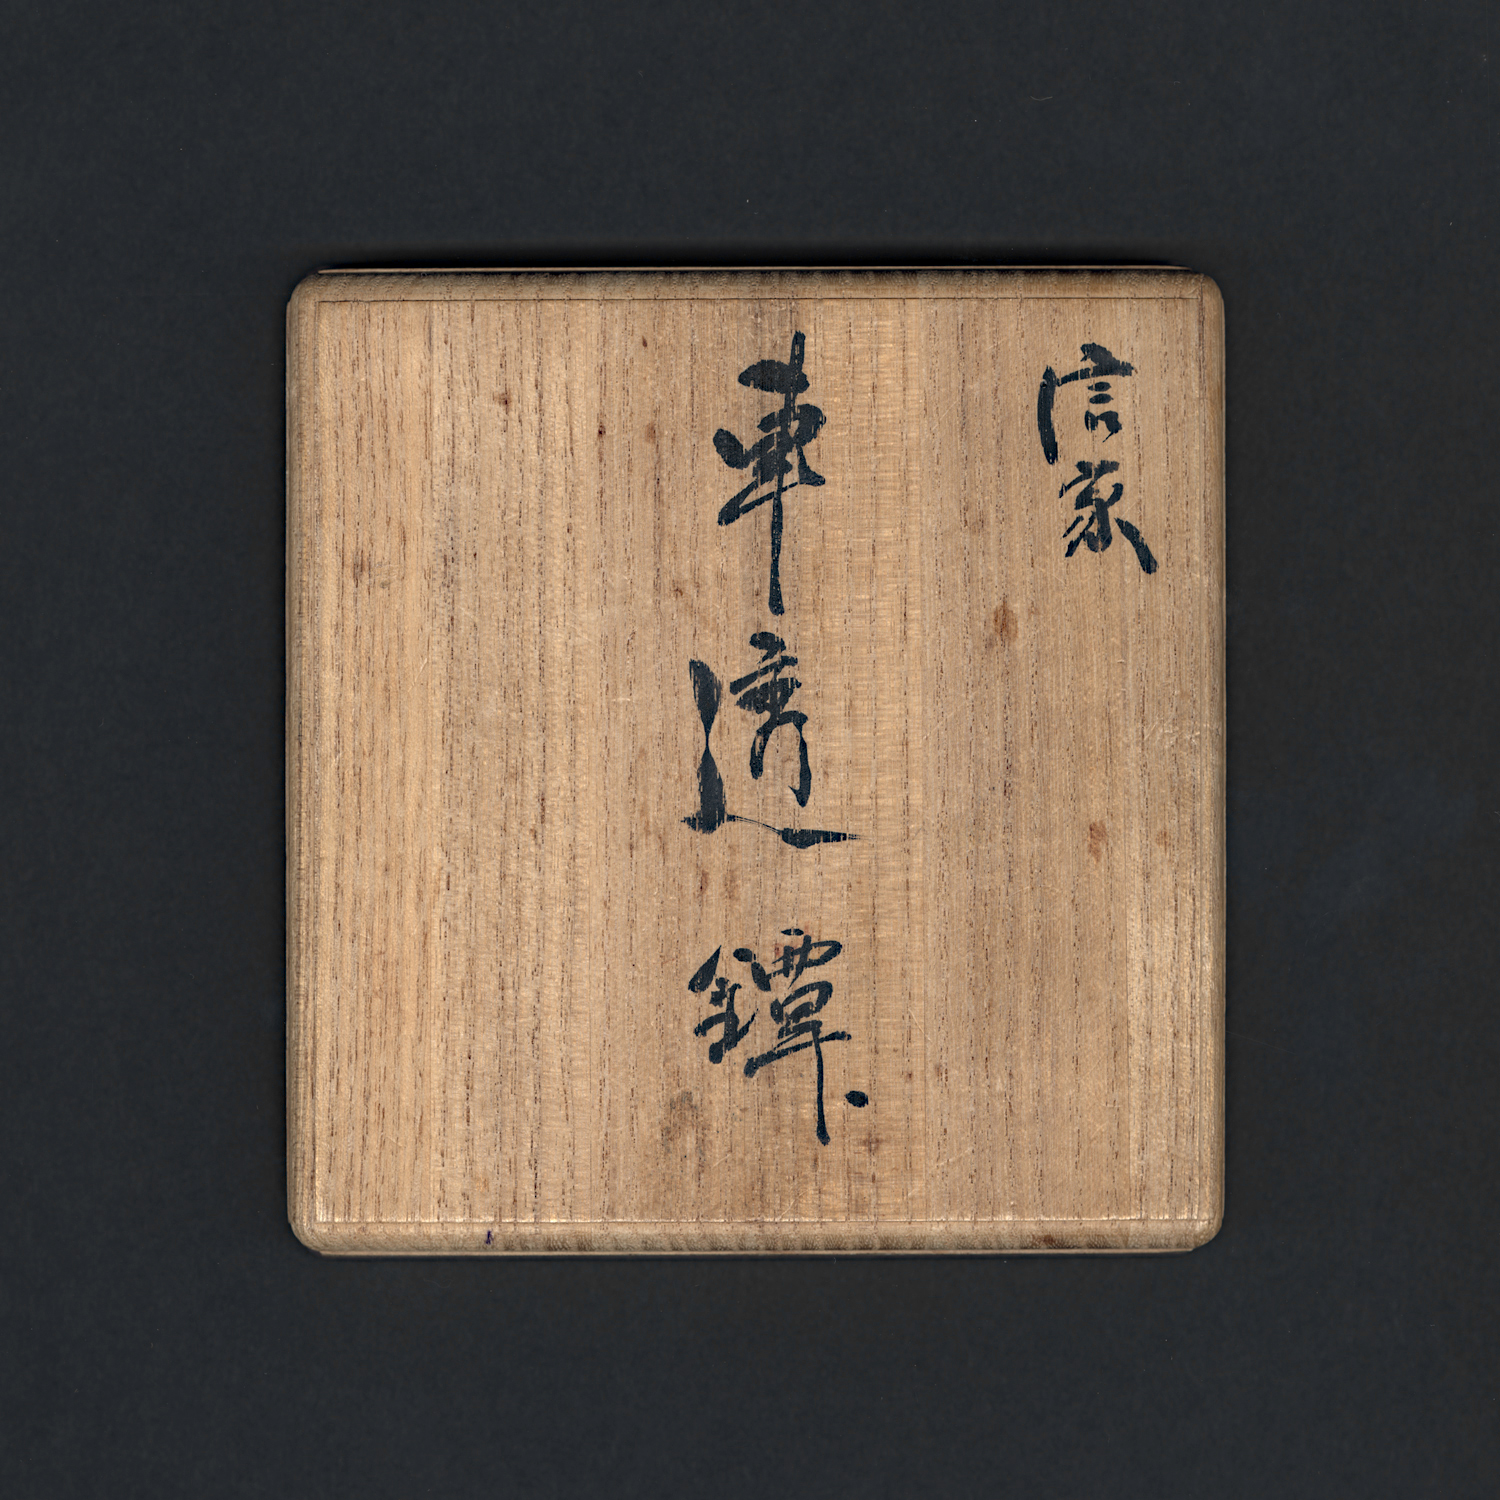 信家
車透鐔